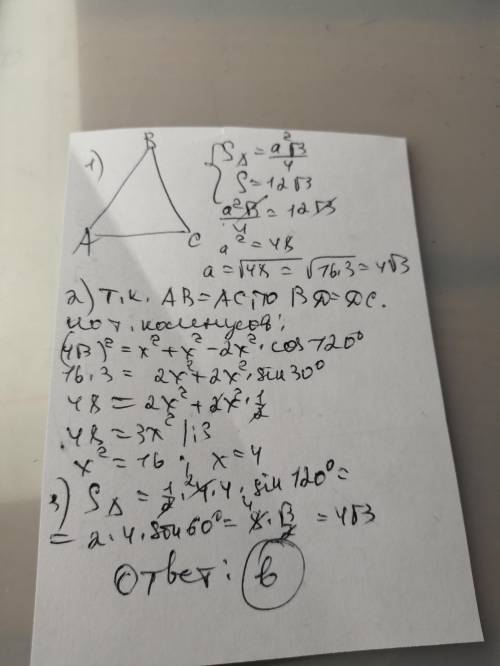 1)
B
A
C
S△ = a²√3/4
S = 12√3
a²√3/4 = 12√3
a² = 48
a = √48 = √16·3 = 4√3
2) Т.к. AB = AC, то BD = DC.
по т. косинусов:
(4√3)² = x² + x² - 2x²·cos120°
16·3 = 2x² + 2x²·sin30°
48 = 2x² + 2x²·1/2
48 = 3x² |:3
x² = 16; x = 4
3) S△ = 1/2·4·4·sin120° =
= 2·4·sin60° = 8·√3/2 = 4√3
Ответ: в